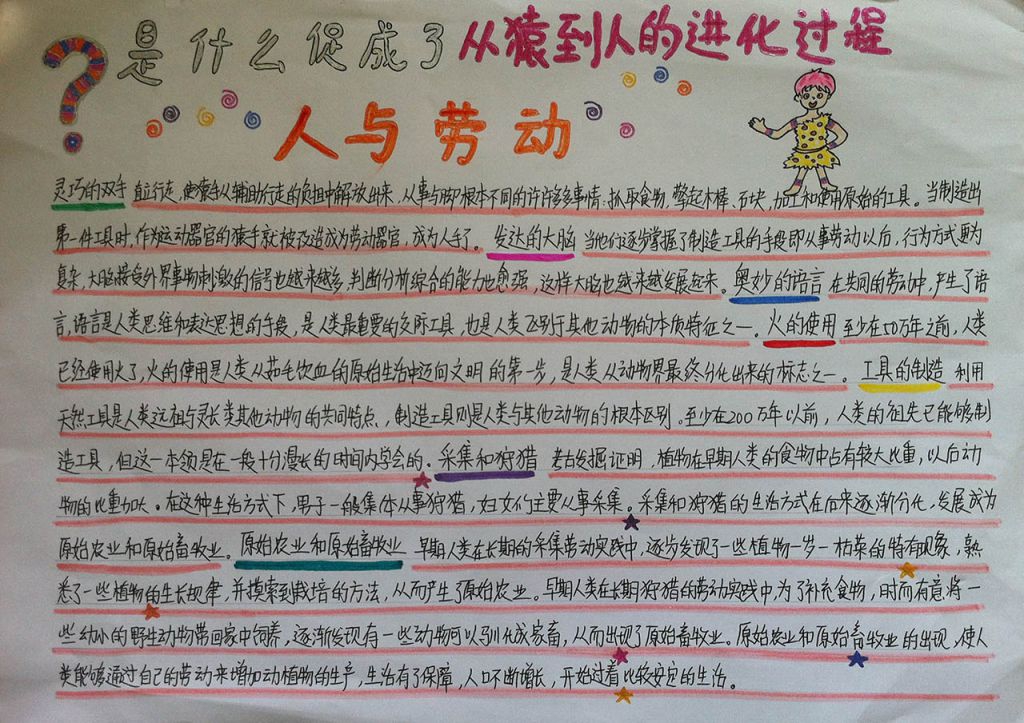 ?是什么促成了从猿到人的进化过程
人与劳动
灵巧的双手 直立行走,使猿手从辅助行走的负担中解放出来,从事与脚根本不同的许许多多事情:抓取食物,擎起木棒、石块,加工和使用原始的工具。当制造出
第一件工具时,作为运动器官的猿手就被改造成为劳动器官,成为人手了。发达的大脑 当他们逐步掌握了制造工具的手段即从事劳动以后,行为方式更为
复杂,大脑接受外界事物刺激的信号也越来越多,判断分析综合的能力也愈强,这样大脑也越来越发展起来。奥妙的语言 在共同的劳动中,产生了语
言,语言是人类思维和表达思想的手段,是人类最重要的交际工具,也是人类区别于其他动物的本质特征之一。火的使用 至少在50万年之前,人类
已经使用火了,火的使用是人类从茹毛饮血的原始生活中迈向文明的第一步,是人类从动物界最终分化出来的标志之一。工具的制造 利用
天然工具是人类远祖与灵长类其他动物的共同特点,制造工具则是人类与其他动物的根本区别。至少在200万年以前,人类的祖先已能够制
造工具,但这一本领是在一段十分漫长的时间内学会的.采集和狩猎 考古发掘证明,植物在早期人类的食物中占有较大比重,以后动
物的比重加大。在这种生活方式下,男子一般集体从事狩猎,妇女们主要从事采集。采集和狩猎的生活方式在后来逐渐分化,发展成为
原始农业和原始畜牧业。原始农业和原始畜牧业 早期人类在长期的采集劳动实践中,逐步发现了一些植物一岁一枯荣的特有现象,熟
悉了一些植物的生长规律,并摸索到栽培的方法,从而产生了原始农业。早期人类在长期狩猎的劳动实践中,为了补充食物,时而有意将一
些幼小的野生动物带回家中饲养,逐渐发现有一些动物可以驯化成家畜,从而出现了原始畜牧业。原始农业和原始畜牧业的出现,使人
类能够通过自己的劳动来增加动植物的生产,生活有了保障,人口不断增长,开始过着比较安定的生活。